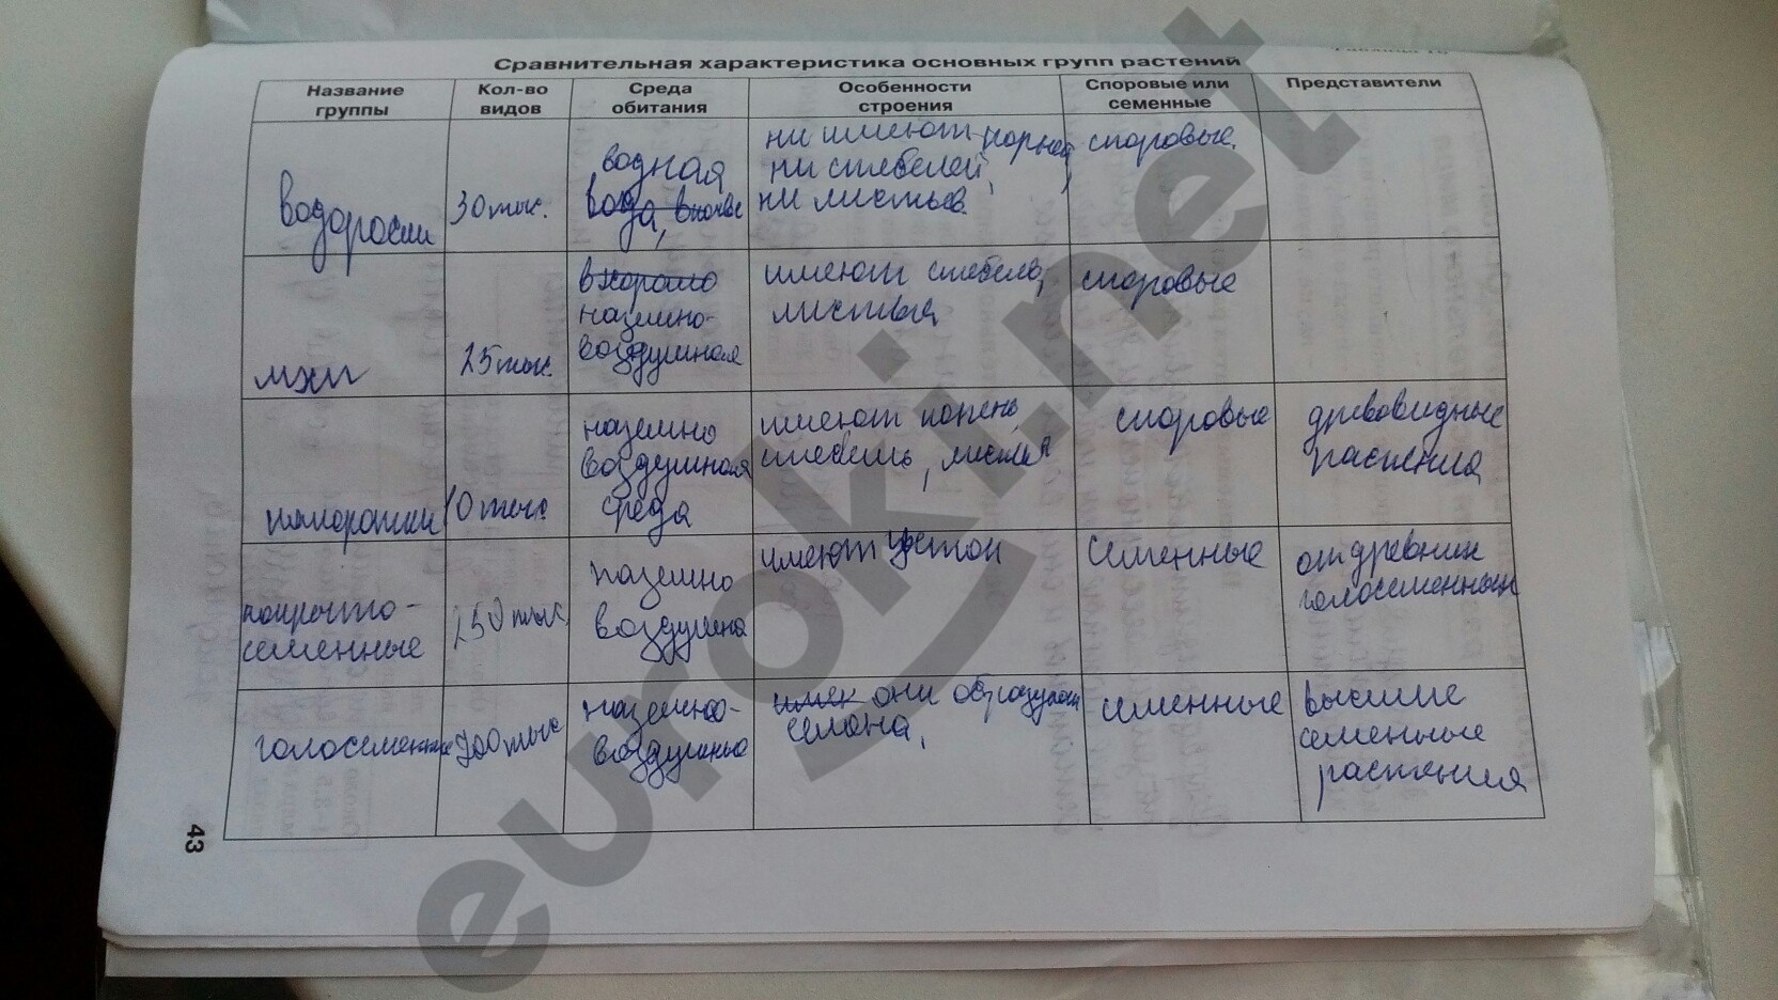 Сравнительная характеристика основных групп растений
Название
группы
Кол-во
видов
Среда
обитания
Особенности
строения
Споровые или
семенные
Представители
водоросли
30 тыс.
водная
вода, в почве
ни имеют корней,
ни стебелей,
ни листьев.
споровые.
мхи
25 тыс.
в хорошо
наземно-
воздушная
имеют стебель,
листья
споровые
папоротники
10 тыс.
наземно
воздушная
среда
имеют корень,
стебель, листья
споровые
древовидные
растения
покрыто-
семенные
250 тыс.
наземно
воздушна
имеют цветок
семенные
от древних
голосеменных
голосеменные
700 тыс
наземно-
воздушные
имек они образуют
семена,
семенные
высшие
семенные
растения
43
euroki.net